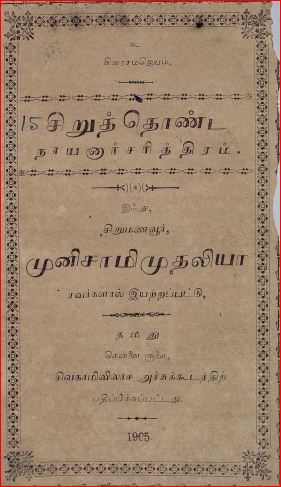 உ
சிவமயம்.
15 சிறுத்தொண்ட
நாயனார்சரித்திரம்.
இஃது,
சிறுமணவூர்,
முனிசாமிமுதலியா
ரவர்களால் இயற்றப்பட்டு,
தமது
சென்னை
சிவகாமிவிலாச அச்சுக்கூடத்திற்
பதிப்பிக்கப்பட்டது.
1905